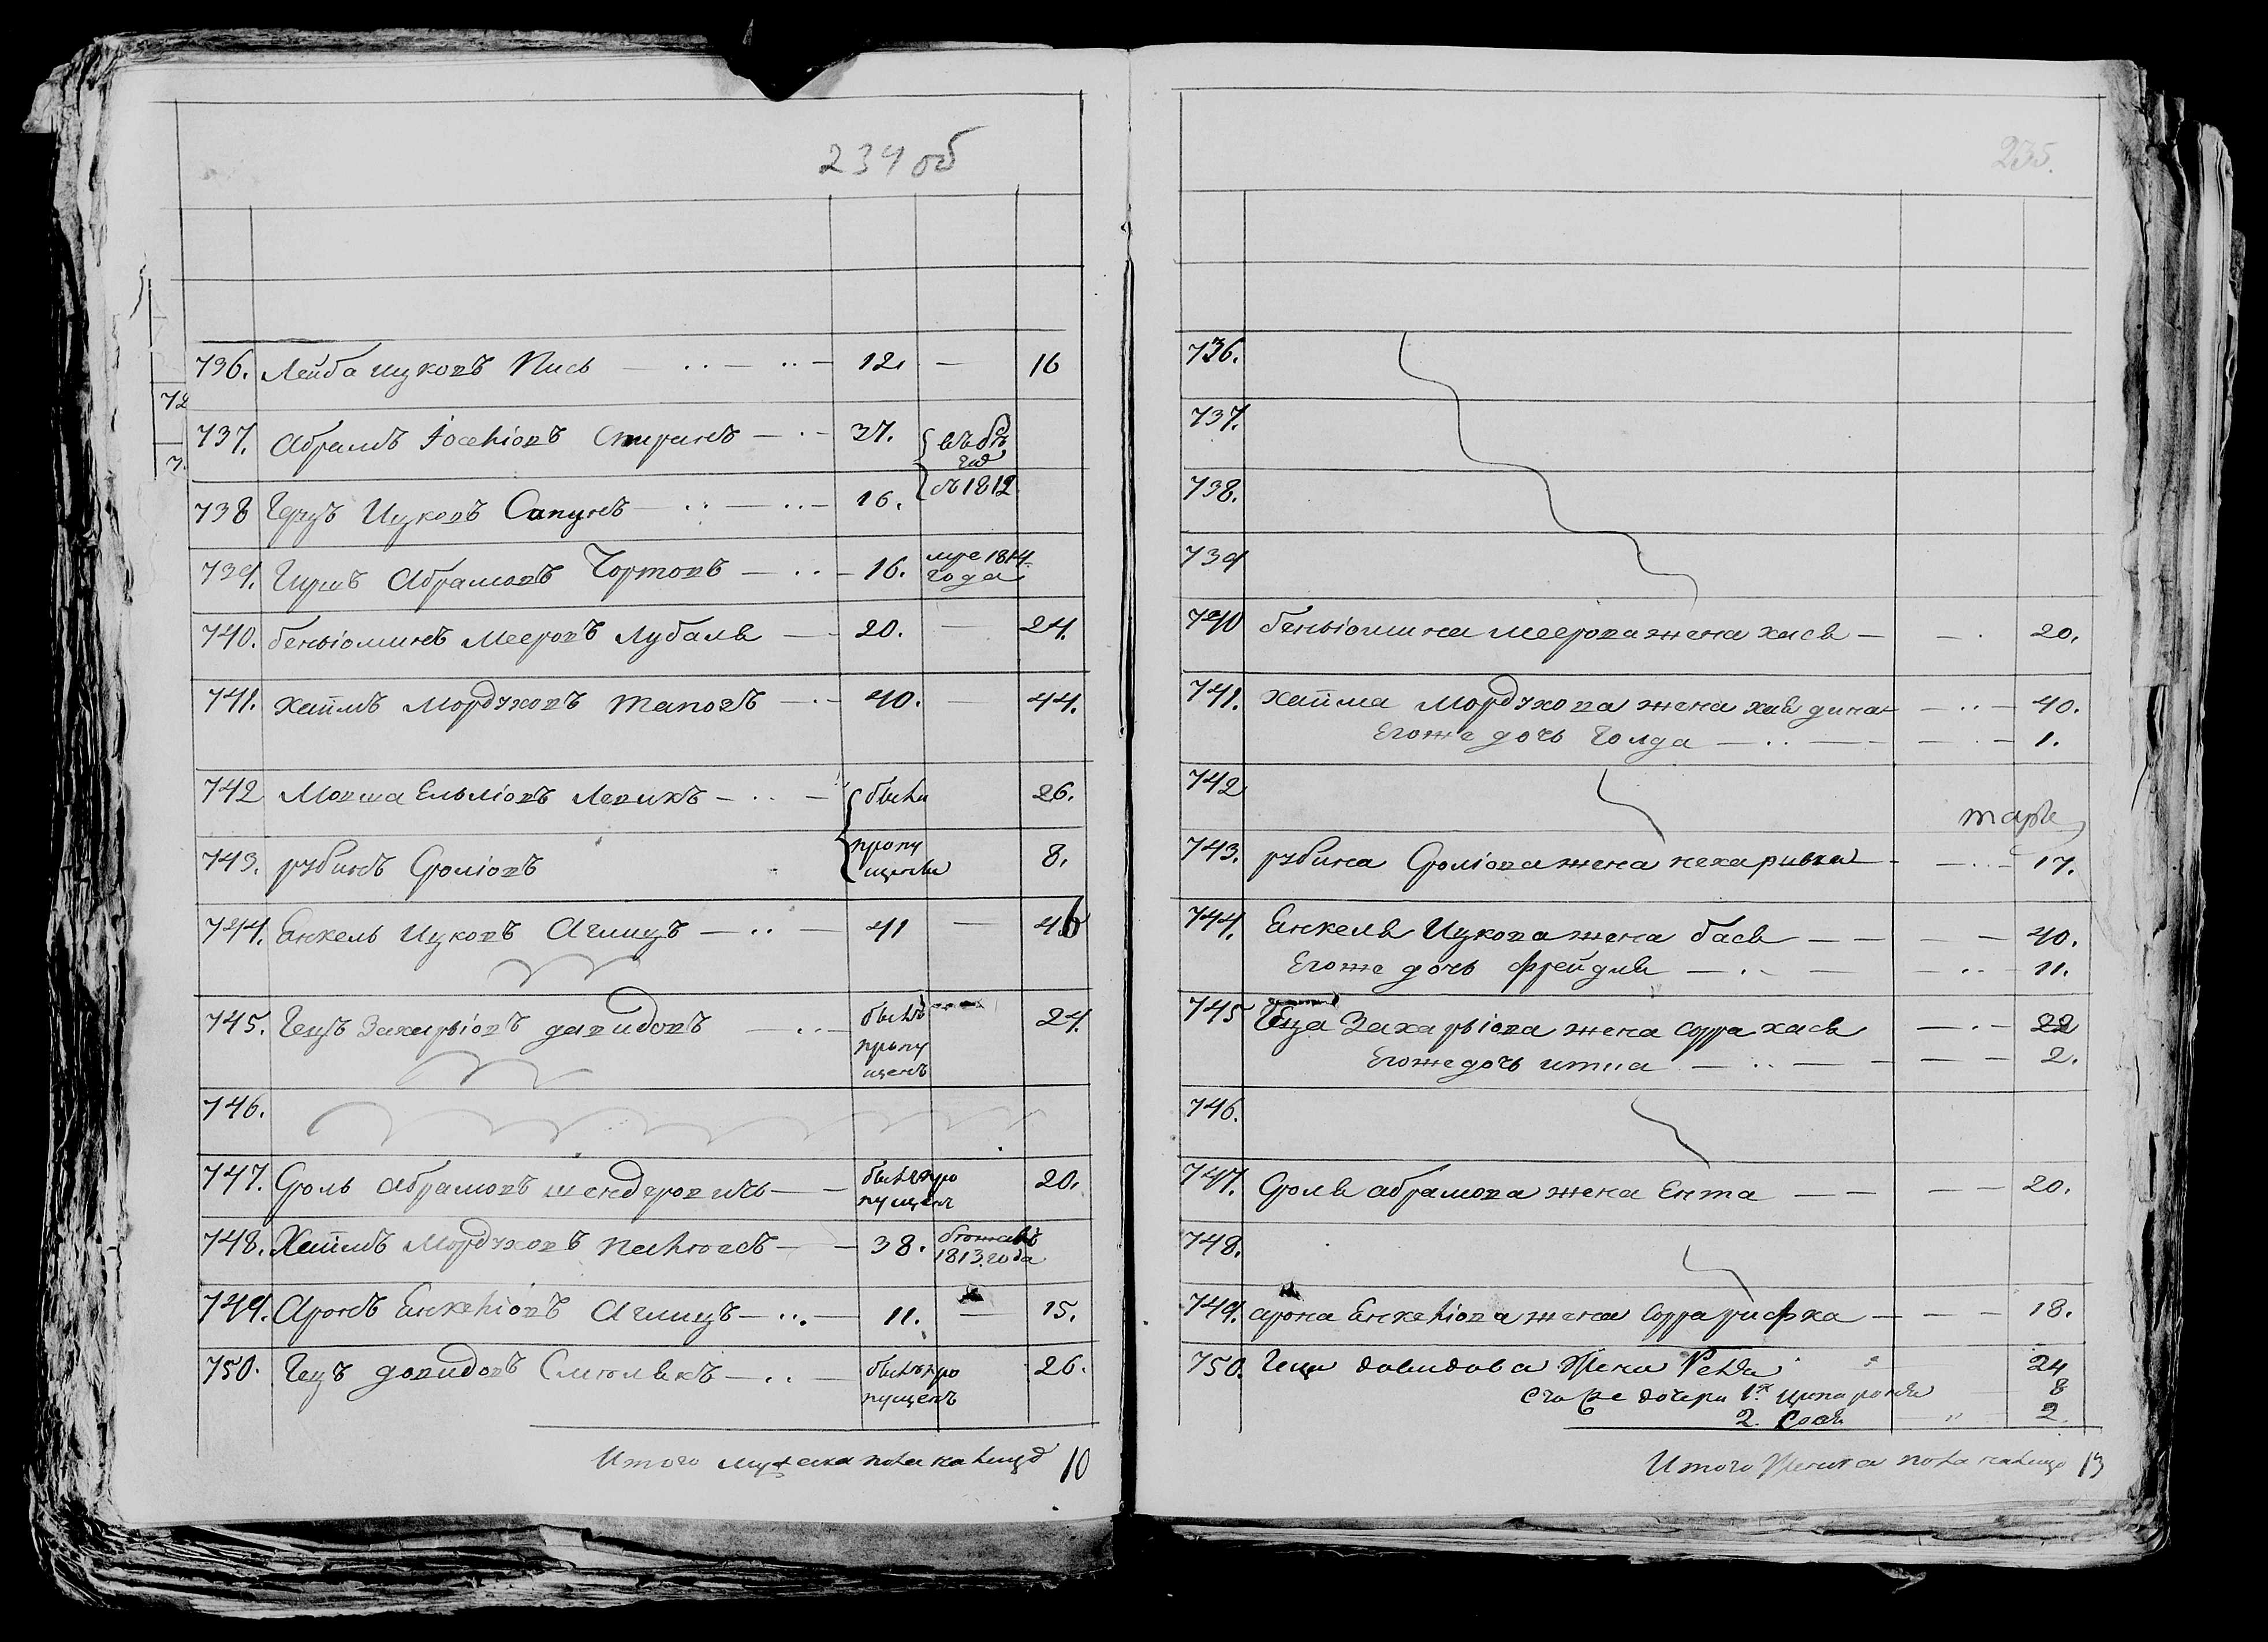 234 об
736. Лейба Ицковъ Пись 12. — 16
737. Абрамъ Іоселіовъ Спиранъ 37.
738 Герцъ Ицковъ Сапунъ 16.
съ 1812
739. Гиршъ Абрамовъ Чортовъ 16. 1814 года
740. беньіоминъ Мееровъ Лубаль 20. — 24.
741. хаймъ Мордуховъ 40. — 44.
742 Мовша Ельліовъ Левикъ были 26.
743. рубинъ Сроліовъ пропущены 8.
744. Енкель Ицковъ Аглицъ 41 — 46
745. Гецъ Захарьіовъ давидовъ былъ пропущенъ 24.
746.
747. Сроль абрамовъ шендеровичь былъ пропущенъ 20.
748. Хаймъ Мордуховъ 38. 1813 года
749. Аронъ Енкеліовъ Аглицъ 11. — 15.
750. Гецъ довидовъ былъ пропущенъ 26.
Итого мужеска пола налицо 10
235.
736.
737.
738.
739
740 беньіомина Меерова жена хася 20.
741. хайма Мордухова жена хая дина 40.
Егоже дочь Голда 1.
742
743. рубина Сроліова жена неха ривка 17.
744. Енкеля Ицкова жена бася 40.
Егоже дочь фрейдля 11.
745 Геца Захарьіова жена сорра хася 22
Егоже дочь итка 2.
746.
747. Сроля абрамова жена Ента 20.
748.
749. арона Енкеліова жена сорра рифка 18.
750. Геца довидова Жена Рейза 24
дочери 1я 8
2. Сося 2.
Итого Женска пола налицо 13